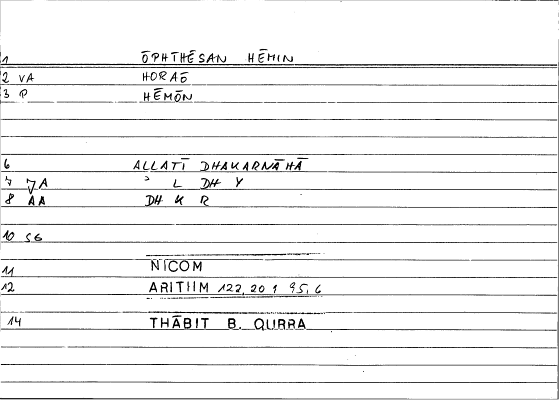 1 ŌPHTHĒSAN HĒMIN
2 VA HORAŌ
3 P HĒMŌN
6 ALLATĪ DHAKARNĀHĀ
7 JA ʾ L DH Y
8 AA DH K R
10 SG
11 NICOM
12 ARITHM 122, 20 1 95, 6
14 THĀBIT B. QURRA